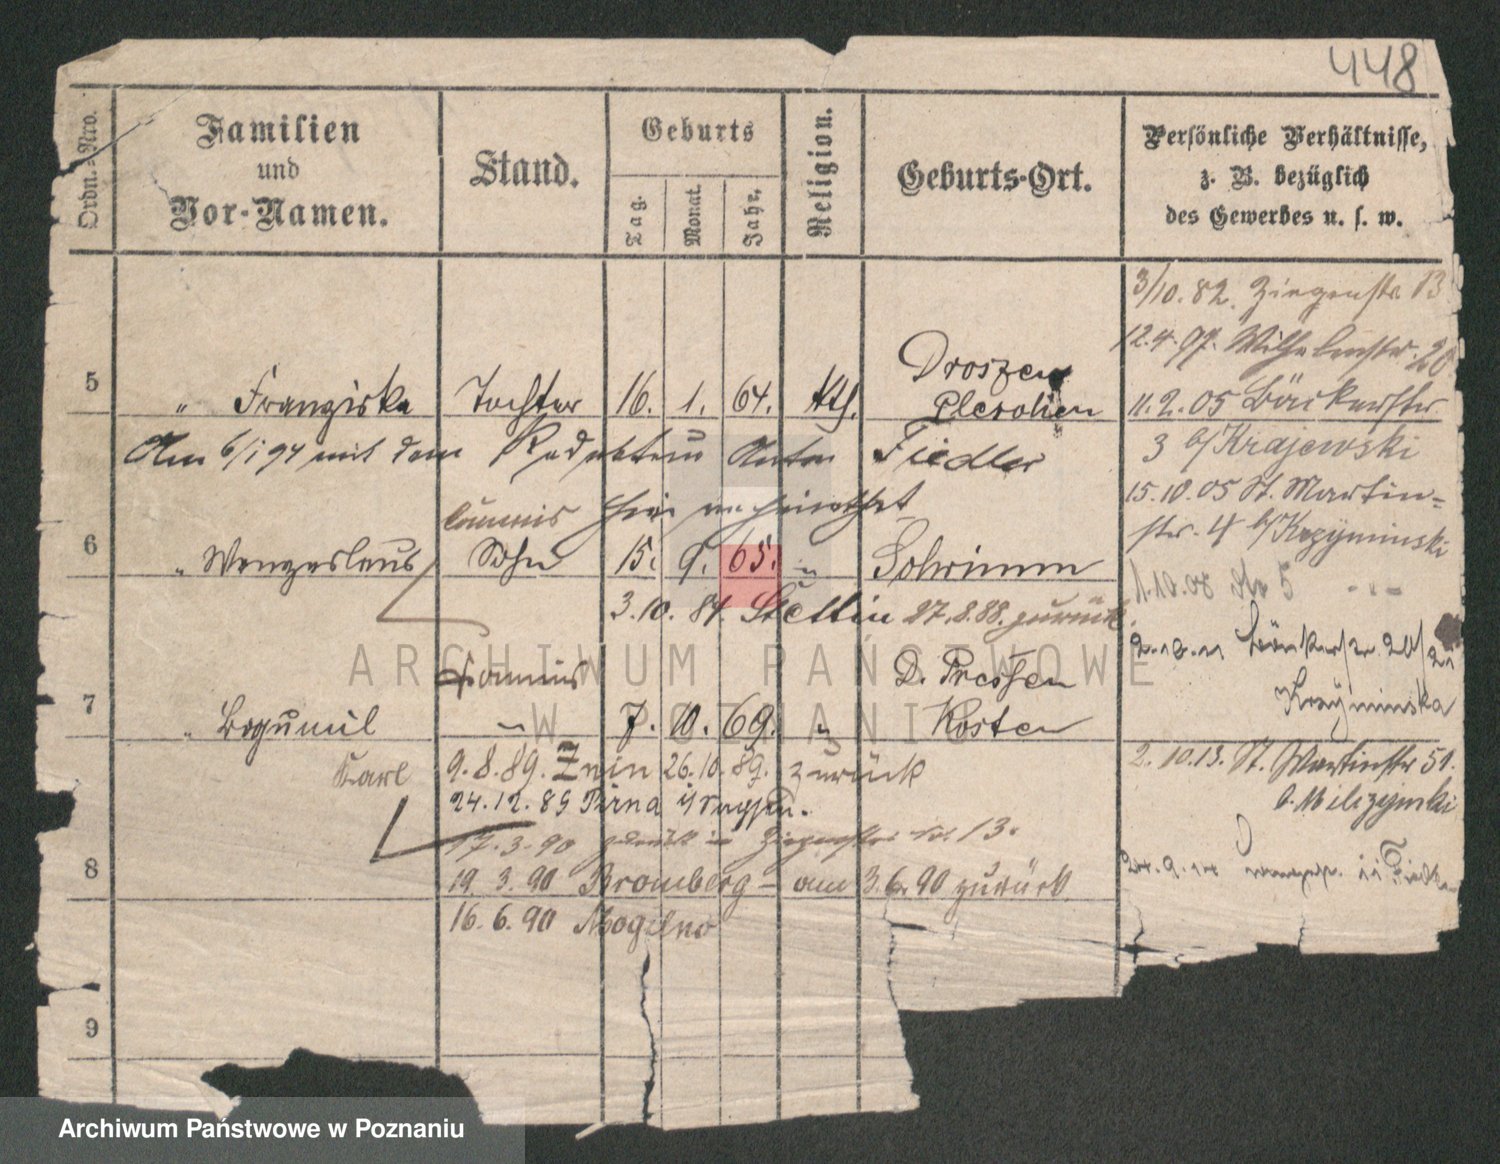 448
Ordn.-Nro.
Familien
und
Vor-Namen.
Stand.
Geburts
Tag.
Monat.
Jahr.
Religion.
Geburts-Ort.
Persönliche Verhältnisse,
z. B. bezüglich
des Gewerbes u. s. w.
3/10. 82. Ziegenstr. 13
12.4.97. Wilhelmstr. 20
Droszen
5 " Franziska Tochter 16. 1. 64. kth. Pleschen
11.2.05 Bäckerstr.
Am 6/1 94 mit dem Redakteur Anton Fiedler
3 b/Krajewski
hier verheirathet
15.10.05 St. Martin-
str. 4 b/Krzyminski
6 " Wenzeslaus Sohn 15. 9. 65. " Schrimm
1.10.08 5
3.10.84. Stettin 27.8.88. zurück.
Krzyminska
Commis
7 " Bogumil 7. 10. 69. " Kosten
Karl
9.8.89. Znin 26.10.89. zurück
2.10.13. St. Martinstr 51.
24.12.89 Pirna
17.3.90 zurück Ziegenstr. No. 13.
8
19.3.90 Bromberg - am 3.6.90 zurück.
16.6.90 Mogilno
9
ARCHIWUM PAŃSTWOWE
W POZNANIU
Archiwum Państwowe w Poznaniu